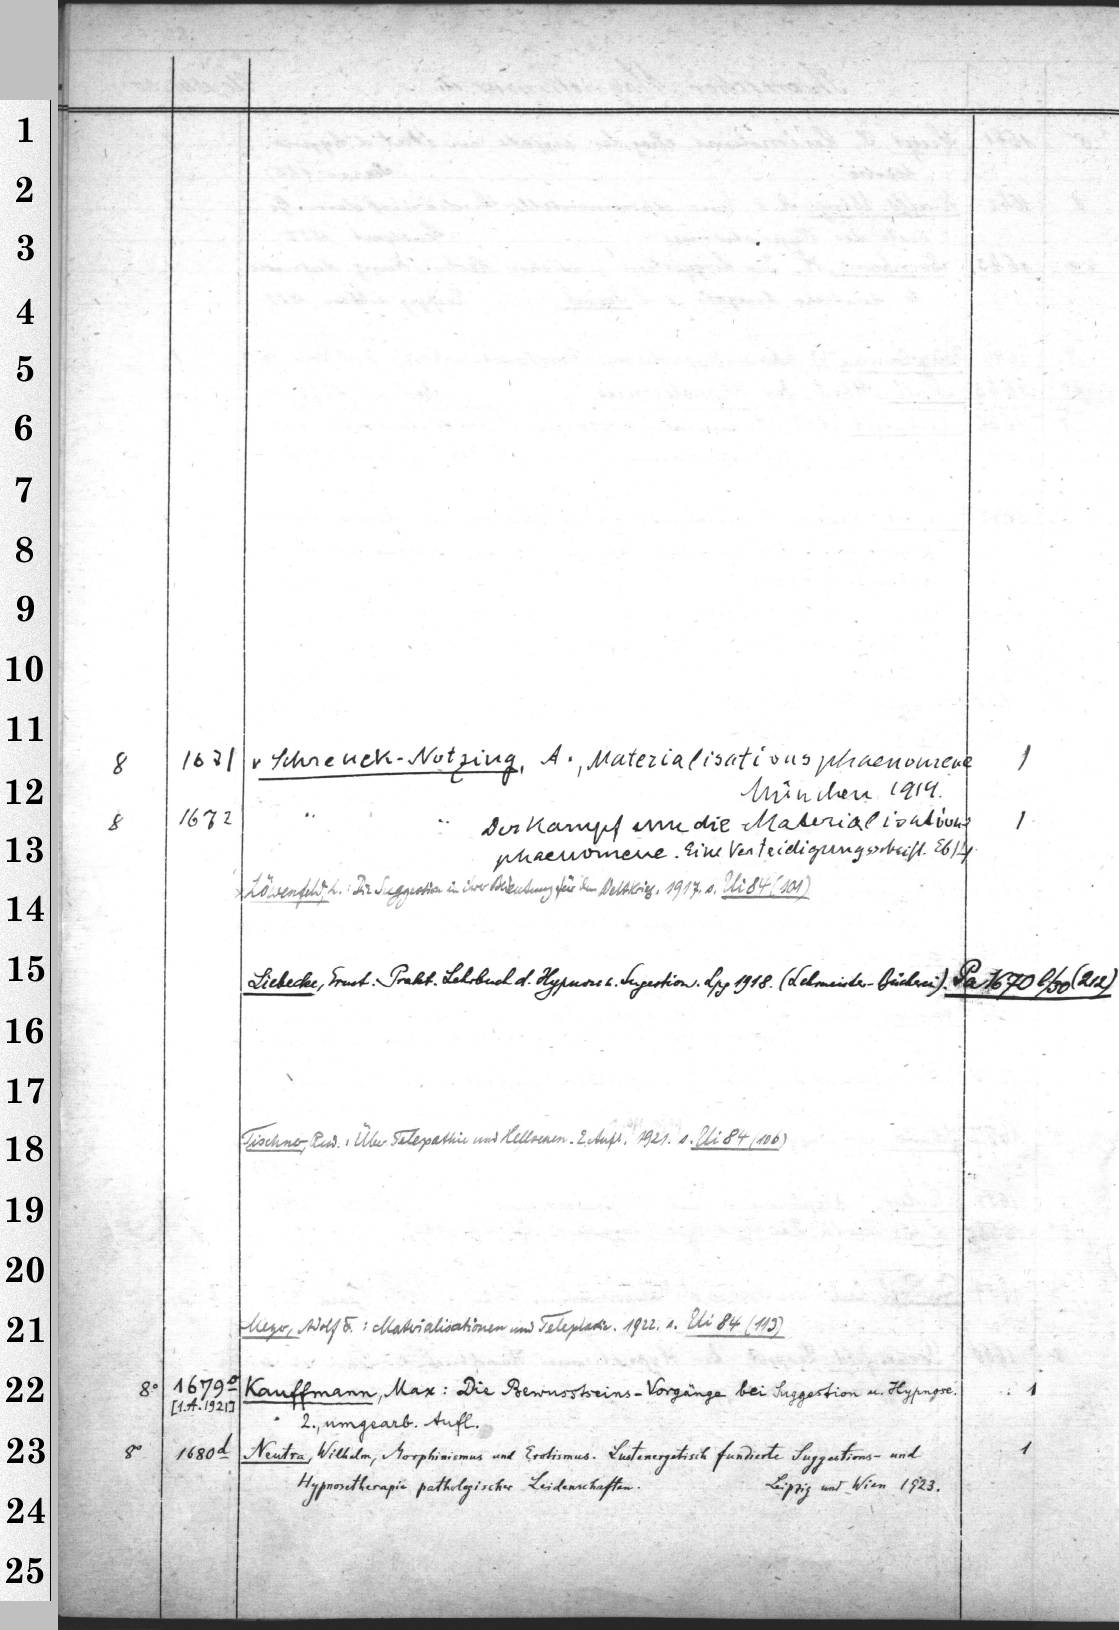 1
2
3
4
5
6
7
8
9
10
11
8 1671 v Schrenck-Notzing, A., Materialisationsphaenomene 1
12 München 1914.
8 1672 " " Der Kampf um die Materialisations 1
13 phaenomene. Eine Verteidigungsschrift. Eb/14
Löwenfeld, L.: Die Suggestion in ihrer Bedeutung für den Weltkrieg. 1917. s. Uli 84 (101)
14
15 Liebecke, Ernst: Prakt. Lehrbuch d. Hypnose u. Sugestion. Lpg 1918. (Lehrmeister-Bücherei). Pa 1670 l/50 (212)
16
17
18 Tischner, Rud.: Über Telepathie und Hellsehen. 2. Aufl. 1921. s. Uli 84 (106)
19
20
21 Meyer, Adolf F.: Materialisationen und Teleplasie. 1922. s. Uli 84 (113)
22 8° 1679 Kauffmann, Max: Die Bewusstseins-Vorgänge bei Suggestion u. Hypnose. 1
[1.A.1921] 2., umgearb. Aufl.
23 8° 1680d Neutra, Wilhelm, Morphinismus und Erotismus. Lustenergetisch fundierte Suggestions- und 1
Hypnosetherapie pathologischer Leidenschaften. Leipzig und Wien 1923.
24
25